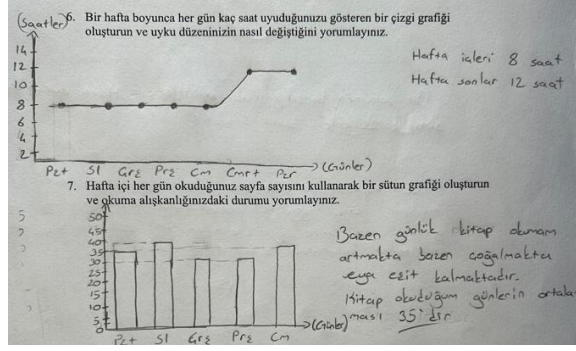 (Saatler)
6. Bir hafta boyunca her gün kaç saat uyuduğunuzu gösteren bir çizgi grafiği
oluşturun ve uyku düzeninizin nasıl değiştiğini yorumlayınız.
14
12
10
8
6
4
2
Hafta içleri 8 saat
Hafta sonları 12 saat
Pzt Sl Çrş Prş Cm Cmrt Pzr (Günler)
7. Hafta içi her gün okuduğunuz sayfa sayısını kullanarak bir sütun grafiği oluşturun
ve okuma alışkanlığınızdaki durumu yorumlayınız.
50
45
40
35
30
25
20
15
10
5
0
Pzt Sl Çrş Prş Cm (Günler)
Bazen günlük kitap okumam
artmakta bazen çoğalmakta
veya eşit kalmaktadır.
Kitap okuduğum günlerin ortala
ması 35'dir